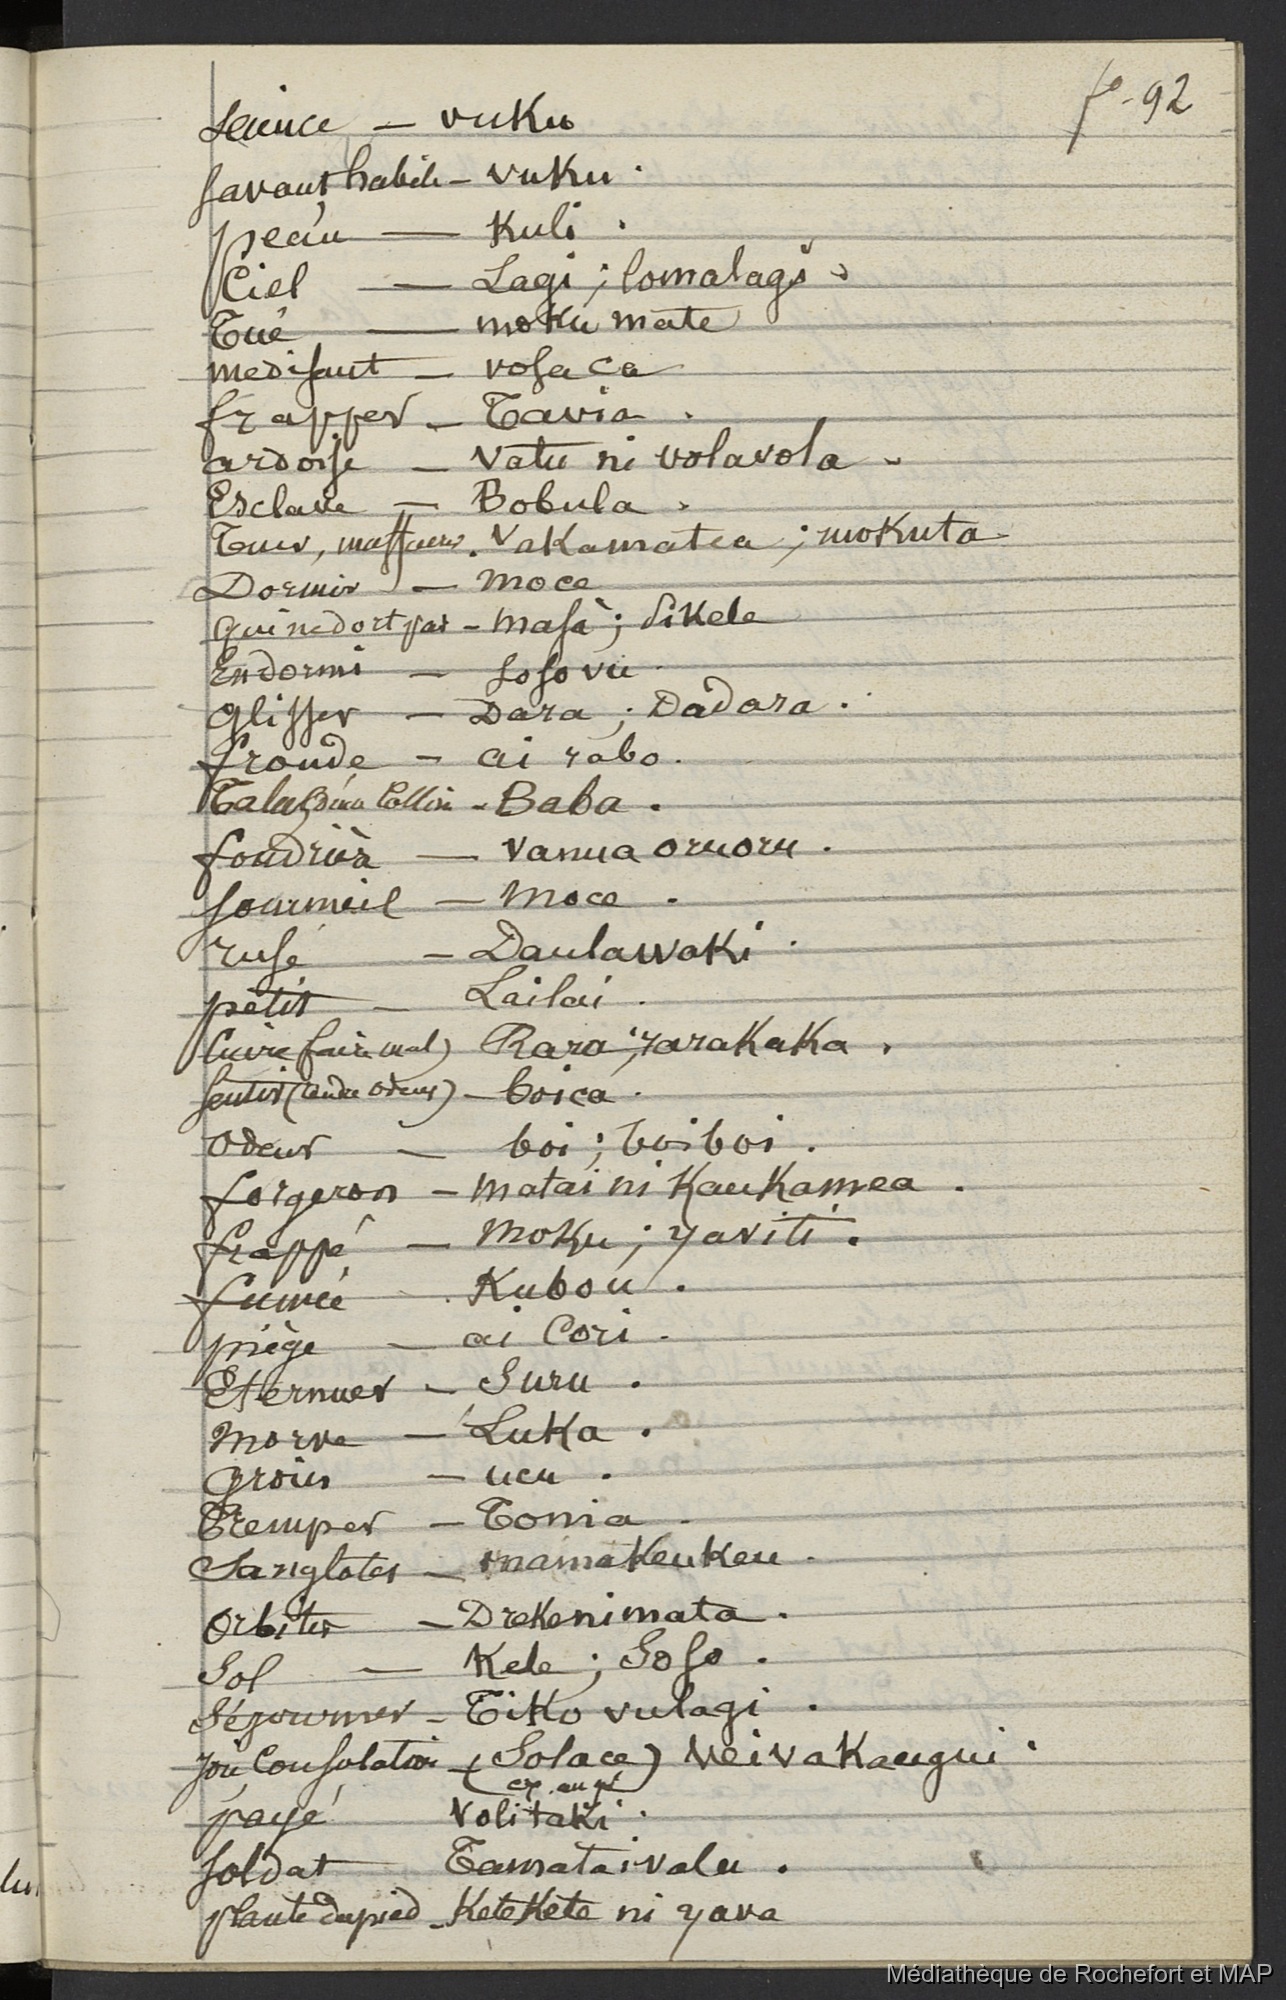 fo-92
Science — vuku
Savant habile - vuku.
peau — Kuli.
Ciel — Lagi; lomalagi.
Tué — moku mate
medisant — vosa ca
frapper - Tavia.
ardoise — Vatu ni volavola.
Esclave — Bobula.
Tuer, massacrer. Vakamatea; mokuta
Dormir — moce
qui ne dort pas - masa; Sikele
Endormi — Sosovu.
glisser — Dara; Dadara.
fronde - ai rabo.
Talus Colline - Baba.
fondrière — Vanua oruoru.
Sommeil — Moce.
rusé — Daulawaki.
petit — Lailai.
Cuire (faire mal) Rara; rarakaka.
Sentir ( odeur) — boica.
odeur — boi; boiboi.
forgeron - matai ni Kaukamea.
frappé — Moku; yaviti.
fumée Kubou.
piège — ai Cori.
Eternuer - Suru.
Morve — Luka.
groin — ucu.
Tremper — Tonia.
Sangloter — mamakeukeu.
Orbiter — Drekenimata.
Sol — Kele; Soso.
Séjourner - Tiko vulagi.
Consolation - (Solace) Veivakaugui.
payé Volitaki.
Soldat Tamataivalu.
plante du pied - Ketekete ni yava
Médiathèque de Rochefort et MAP